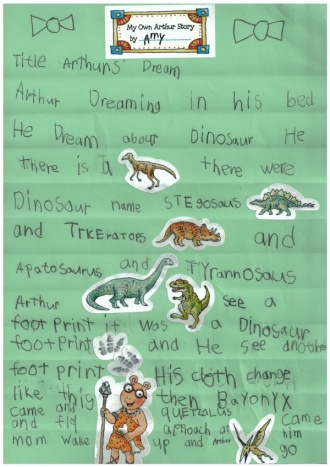 My Own Arthur Story
by Amy
Title Arthurs' Dream
Arthur Dreaming in his bed
He Dream about Dinosaur He
there is a there were
Dinosaur name STEgosaus
and TrKErators and
Apatosaurus and TYrannOSaus
Arthur see a
foot Print it was a Dinosaur
footPrint and He see another
foot print His cloth change
like this then Bayonyx
came and quetzalus came
and fly aproach at him
mom wake up and Arthur go